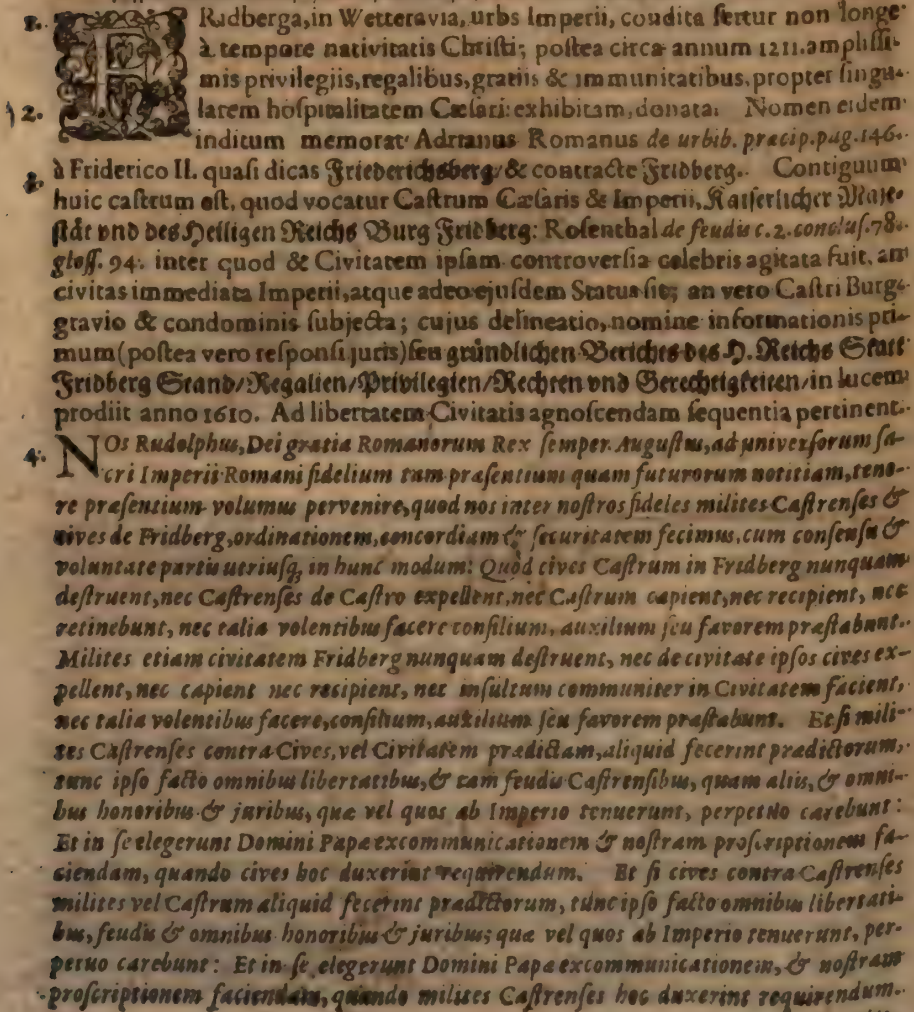 1. FRidberga, in Wetteravia, urbs Imperii, condita fertur non longe
à tempore nativitatis Christi; postea circa annum 1211. amplissi-
mis privilegiis, regalibus, gratiis & immunitatibus, propter singu-
2. larem hospitalitatem Cæsari exhibitam, donata. Nomen eidem
inditum memorat Adrianus Romanus de urbib. præcip. pag. 146.
3. à Friderico II. quasi dicas Friederichsberg/ & contracte Fridberg. Contiguum
huic castrum est, quod vocatur Castrum Cæsaris & Imperii, Kaiserlicher Maje-
stät vnd des Heiligen Reichs Burg Fridberg: Rosenthal de feudis c. 2. conclus. 78.
gloss. 94. inter quod & Civitatem ipsam controversia celebris agitata fuit, an
civitas immediata Imperii, atque adeo ejusdem Status sit; an vero Castri Burg-
gravio & condominis subjecta; cujus delineatio, nomine informationis pri-
mum (postea vero responsi juris) seu gründlichen Berichts des H. Reichs Statt
Fridberg Stand/ Regalien/ Privilegien/ Rechten vnd Gerechtigkeiten/ in lucem
prodiit anno 1610. Ad libertatem Civitatis agnoscendam sequentia pertinent.
4. NOs Rudolphus, Dei gratia Romanorum Rex semper Augustus, ad universorum sa-
cri Imperii Romani fidelium tam præsentium quam futurorum notitiam, teno-
re præsentium volumus pervenire, quod nos inter nostros fideles milites Castrenses &
cives de Fridberg, ordinationem, concordiam & securitatem fecimus, cum consensu &
voluntate partis utriusq; in hunc modum: Quòd cives Castrum in Fridberg nunquam
destruent, nec Castrenses de Castro expellent, nec Castrum capient, nec recipient, nec
retinebunt, nec talia volentibus facere consilium, auxilium seu favorem præstabunt.
Milites etiam civitatem Fridberg nunquam destruent, nec de civitate ipsos cives ex-
pellent, nec capient nec recipient, nec insultum communiter in Civitatem facient,
nec talia volentibus facere, consilium, auxilium seu favorem præstabunt. Et si mili-
tes Castrenses contra Cives, vel Civitatem prædictam, aliquid fecerint prædictorum,
tunc ipso facto omnibus libertatibus, & tam feudis Castrensibus, quam aliis, & omni-
bus honoribus & juribus, quæ vel quos ab Imperio tenuerunt, perpetuo carebunt:
Et in se elegerunt Domini Papæ excommunicationem & nostram proscriptionem fa-
ciendam, quando cives hoc duxerint requirendum. Et si cives contra Castrenses
milites vel Castrum aliquid fecerint prædictorum, tunc ipso facto omnibus libertati-
bus, feudis & omnibus honoribus & juribus; quæ vel quos ab Imperio tenuerunt, per-
petuo carebunt: Et in se elegerunt Domini Papæ excommunicationem, & nostram
proscriptionem faciendam, quando milites Castrenses hoc duxerint requirendum.